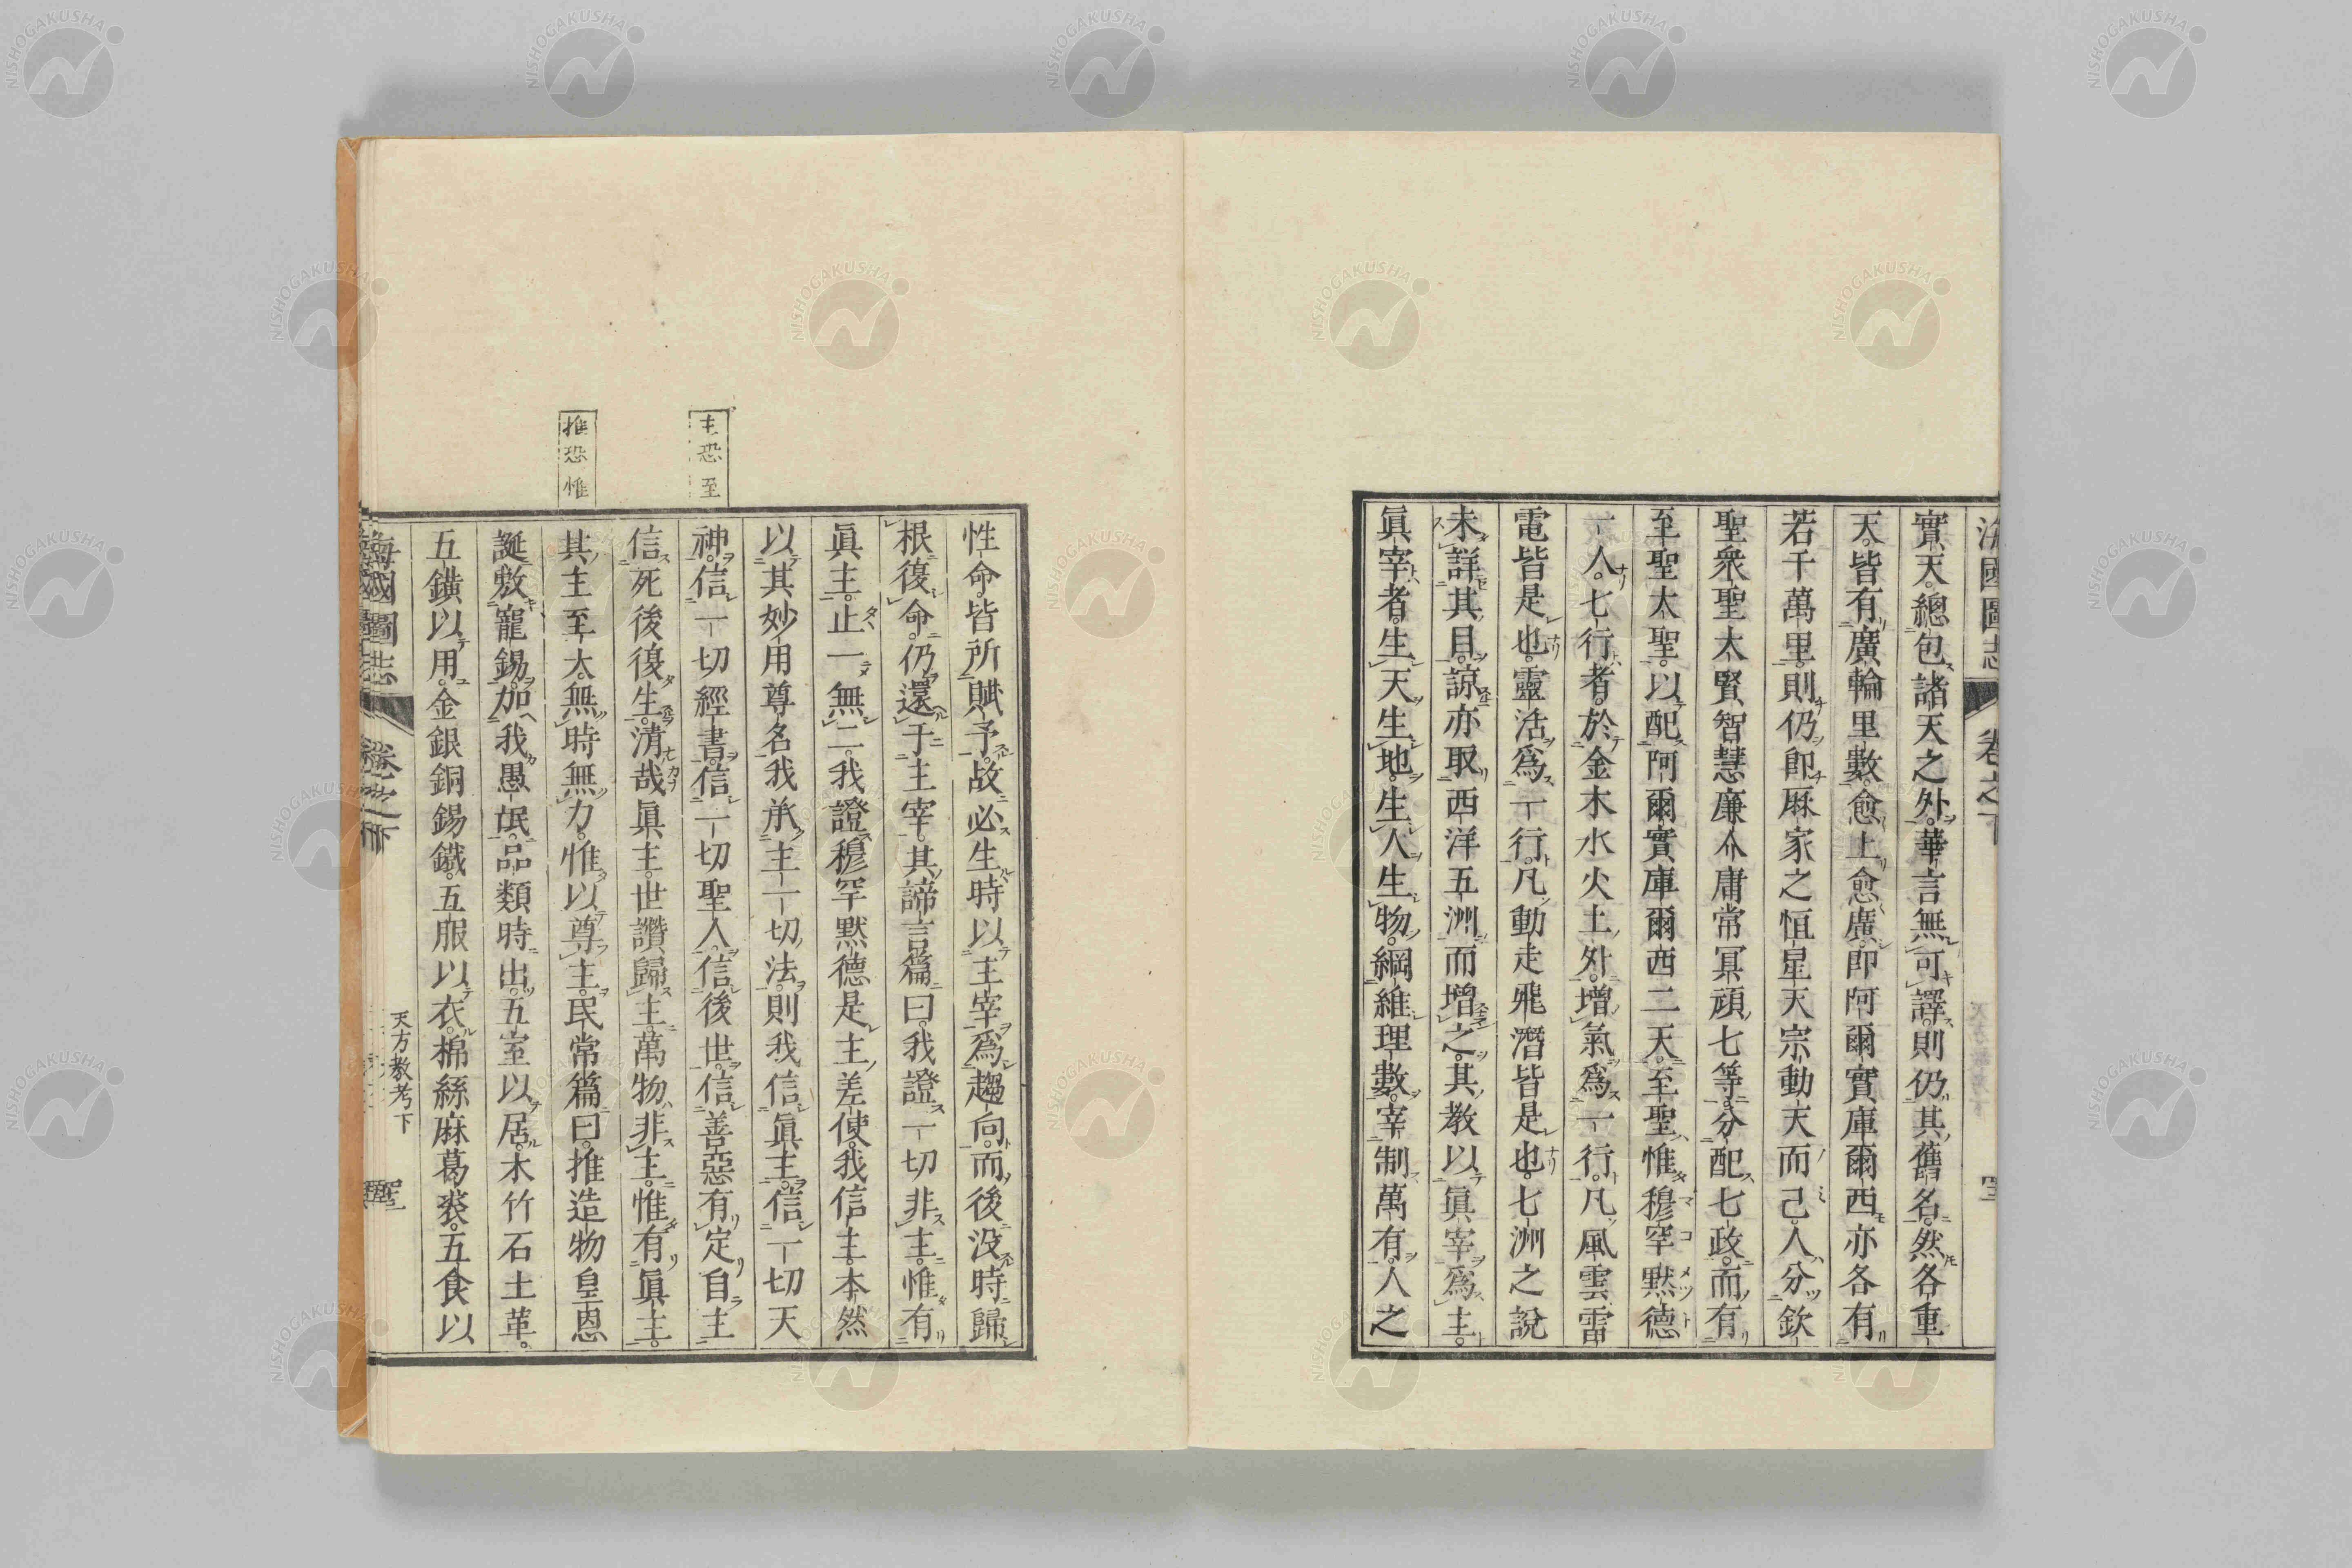 海國圖志 卷之下
實天總包諸天之外。華言無可譯。則仍其舊名。然各重
天。皆有廣輪里數。愈上愈廣。即阿爾實庫爾西亦各有
若干萬里。則仍即厤家之恒星天宗動天而已。人分欽
聖衆聖大賢智慧廉介庸常冥頑七等。分配七政。而有
至聖大聖。以配阿爾實庫爾西二天。至聖惟穆罕默德
一人。七行者。於金木水火土外。增氣爲一行。凡風雲雷
電皆是也。靈活爲一行。凡動走飛潛皆是也。七洲之說
未詳其目。諒亦取西洋五洲而增之。其教以眞宰爲主。
眞宰者。生天生地。生人生物。綱維理數。宰制萬有。人之
性命。皆所賦予。故必生時以主宰爲趨向。而後没時歸
根復命。仍還于主宰。其諦言篇曰。我證一切非主。惟有
眞主。止一無二。我證穆罕默德是主差使。我信主本然
以其妙用尊名。我承主一切法。則我信眞主。信一切天
神。信一切經書。信一切聖人。信後世。信善惡有定自主
信死後復生。清哉眞主。世讚歸主。萬物非主。惟有眞主。
其主至大。無時無力。惟以尊主。民常篇曰。推造物皇恩
誕敷寵錫。加我愚氓。品類時出。五室以居。木竹石土革。
五鑛以用。金銀銅錫鐵。五服以衣。棉絲麻葛裘。五食以
主恐至
推恐惟
海國圖志 卷之下 天方教考下